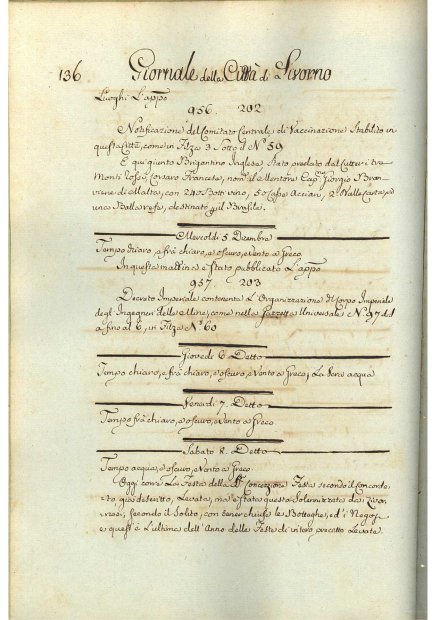 136 Giornale della Città di Livorno
Luoghi L'appo
956. 202
Notificazione del Comitato Centrale di Vaccinazione stabilito in
questa Città, come in Filza 3 sotto il N° 59
È qui giunto Brigantino Inglese stato predato dal i tre
Monti Rosso Corsaro Francese, nom.to il Mentore Cap.no Giorgio
di Malta, con 240 Botti vino, 50 Casse Acciari, 2 Balle Carta, ed
una Balla refe, destinato pil Brasile.
Mercoldì 5 Dicembre
Tempo chiaro, e frà chiaro, e oscuro, e vento a Greco
In questa mattina è stato pubblicato L'appo
957. 203
Decreto Imperiale contenente L'Organizzazione del Corpo Imperiale
degl'Ingegneri delle Mine, come nella Gazzetta Universale N° 97 del
a fino al 6, in Filza N° 60
Giovedì 6. Detto
Tempo chiaro, e frà chiaro, e oscuro, e vento a Greco, La sera acqua
Venerdì 7. Detto
Tempo frà chiaro, e oscuro, e vento a Greco
Sabato 8. Detto
Tempo acqua, e oscuro, e vento a Greco
Oggi com'è La Festa della Concezione Festa secondo il Concorda
to già descritto, Levata, ma è stata questa solennizzata da Livor
nesi, secondo il solito, con tener chiuse le Botteghe, ed i Negozj
e quest'è L'ultima dell'Anno delle Feste di intero precetto Levate.